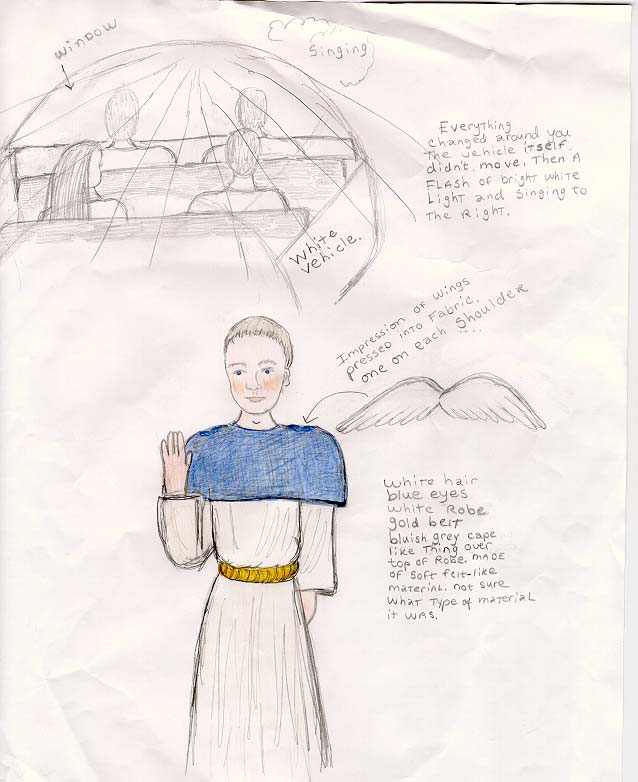 Window
Singing
Everything
changed around you
The vehicle itself
didn't move. Then A
FLASH of bright white
Light and Singing to
The Right.
White
vehicle.
Impression of wings
pressed into Fabric.
one on each Shoulder
white hair
blue eyes
white Robe
gold belt
bluish grey cape
like Thing over
top of Robe. MADE
OF Soft felt-like
MATERIAL. not sure
WHAT Type of material
it was.